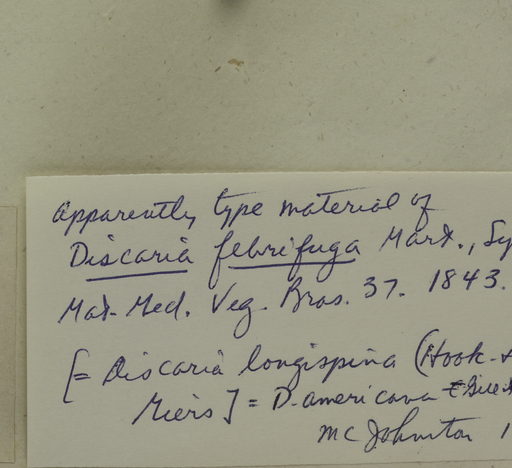 apparently type material of
Discaria febrifuga Mart., Sy
Mat. Med. Veg. Bras. 37. 1843.
[= Discaria longispina (Hook. &
Miers] = D. americana
MC Johnston 1